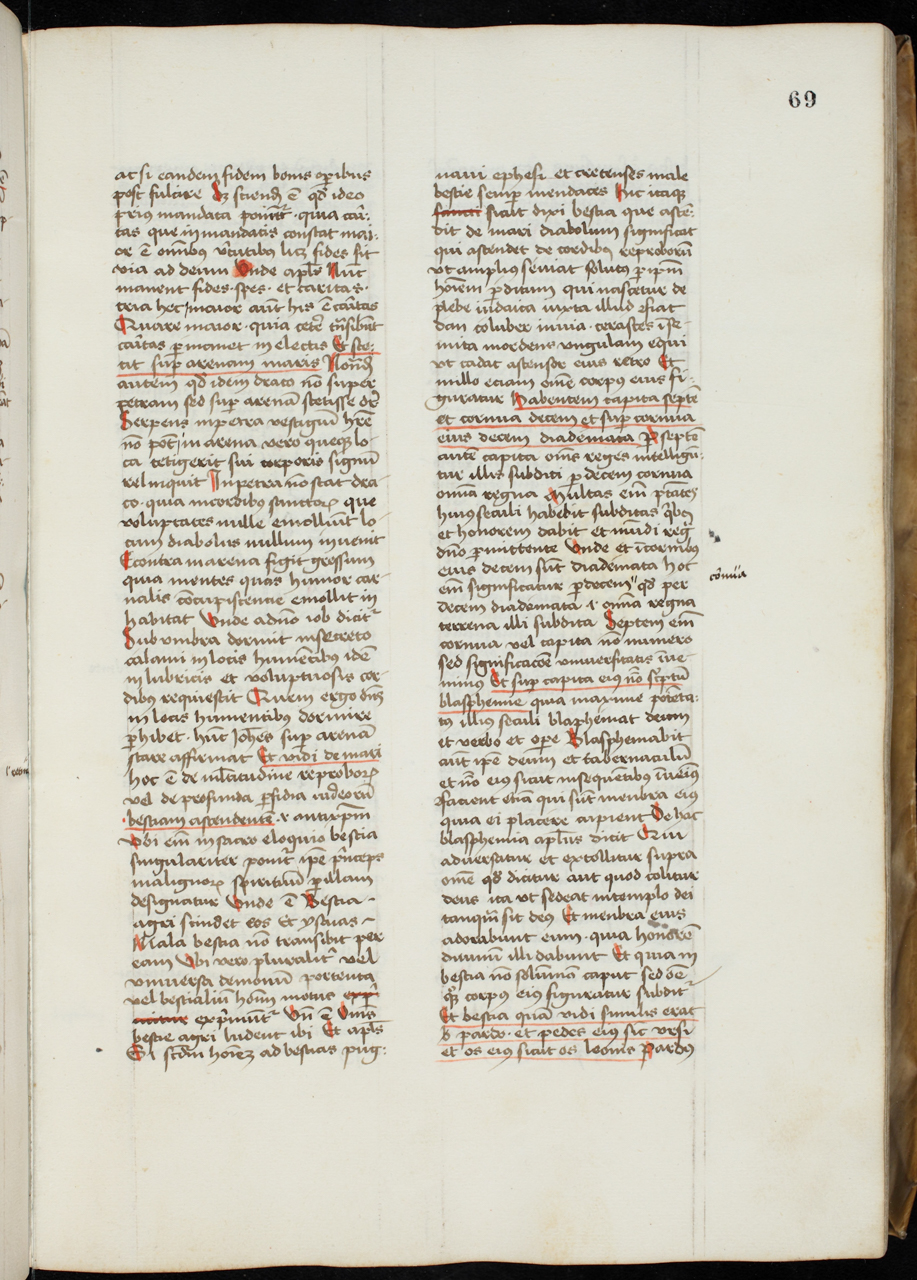 69
ac si eandem fidem bonis operibus
post fulcire Sz sciendū ē qd ideo
prius mandata ponūtr quia cari:
tas que in mandatis constat mai:
or ē omnibus virtutibus licz fides sit
via ad deum Unde apls Nūc
manent fides · spes · et caritas ·
tria hec maior autē his ē caritas
Quare maior · quia cetera
caritas permanet in electis Et ste:
tit sup arenam maris Nonādū
autem qd idem draco nō super
petram sed sup arenā stetisse dr
Serpens in petra vestigiū hrē
nō potē in arena vero quecz lo:
ca tetigerit sui corporis signū
relinquit In petra nō stat dra:
co · quia in cordibus sanctorz que
voluptates nulle emolliūt lo:
cum diabolus nullum inuenit
Econtra in arena figit gressum
quia mentes quas humor car:
nalis concupiscentie emollit in
habitat Unde a dūo iob dicitr
Sub umbra dormit in secreto
calami in locis humentibus idē
in lubricis et voluptuosis cor:
dibus requiescit Quem ergo dūs
in locis humentibus dormire
perhibet · hūc Iohes sup arenā
stare affirmat Et vidi de mari
hoc ē de multitudine reproborz
vel de profunda perfidia iudeorū
bestiam ascendentē · i antixpm
Ubi em in sacro eloquio bestia
singulariter ponitr ipe princeps
malignorz spirituū per illam
designatur Unde ē Bestia
agri scindet eos Et ysaias
Mala bestia nō transibit per
eam Ubi vero pluralitr vel
universa demonū portenta
vel bestialiū hoim motus exp
exprimūtr Un ē Omis
bestie agri ludent ibi Et apls
Si scdm hoiez ad bestias pug:
naui ephesi et cretenses male
bestie semp mendaces Hic itaqz
sancti sicut dixi bestia que ascē:
dit de mari diabolum significat
qui ascendet de cordibus reproborū
ut amplius seuiat solutus per ipm
hoiem perditum qui nascetur de
plebe iudaica iuxta illud Fiat
dan coluber in via · cerastes in se:
mita mordens ungulam equi
ut cadat ascensor eius retro Et
in illo eciam omē corpus eius fi:
guratur Habentem capita septē
et cornua decem et sup cornua
eius decem diademata Per septē
autē capita oms reges intelligū:
tur illi subditi per decem cornua
omia regna Multas em ptātes
huius seculi habebit subditas qbus
et honorem dabit et mūdi reg
dūo permittente Unde et in cornibus
eius decem sūt diademata hoc
em significatur per decem qd per
decem diademata · i · omia regna
terrena illi subdita Septem em
cornua vel capita nō numero
sed significacōe universitatis inue:
nimus Et sup capita eius nō scriptū
blasphemie quia maxime potēta:
tus illius seculi blasphemat deum
et verbo et ope Blasphemabit
autē ipe deum et tabernaculū
et nō eius sicut in sequentibus inueies
Facient etiā qui sūt menbra eius
quia ei placere cupient De hac
blasphemia apls dicit Qui
adversatur et extollitur supra
omē qd dicitur aut quod colitur
deus ita ut sedeat in templo dei
tanqm sit deus Et menbra eius
adorabunt eum · quia honorē
diuinū illi dabunt Et quia in
bestia nō solūmō caput sed oē
corpus eius figuratur subditr
Et bestia quā vidi similis erat
pardo · et pedes eius sic ursi
et os eius sicut os leonis Pardus
cornua